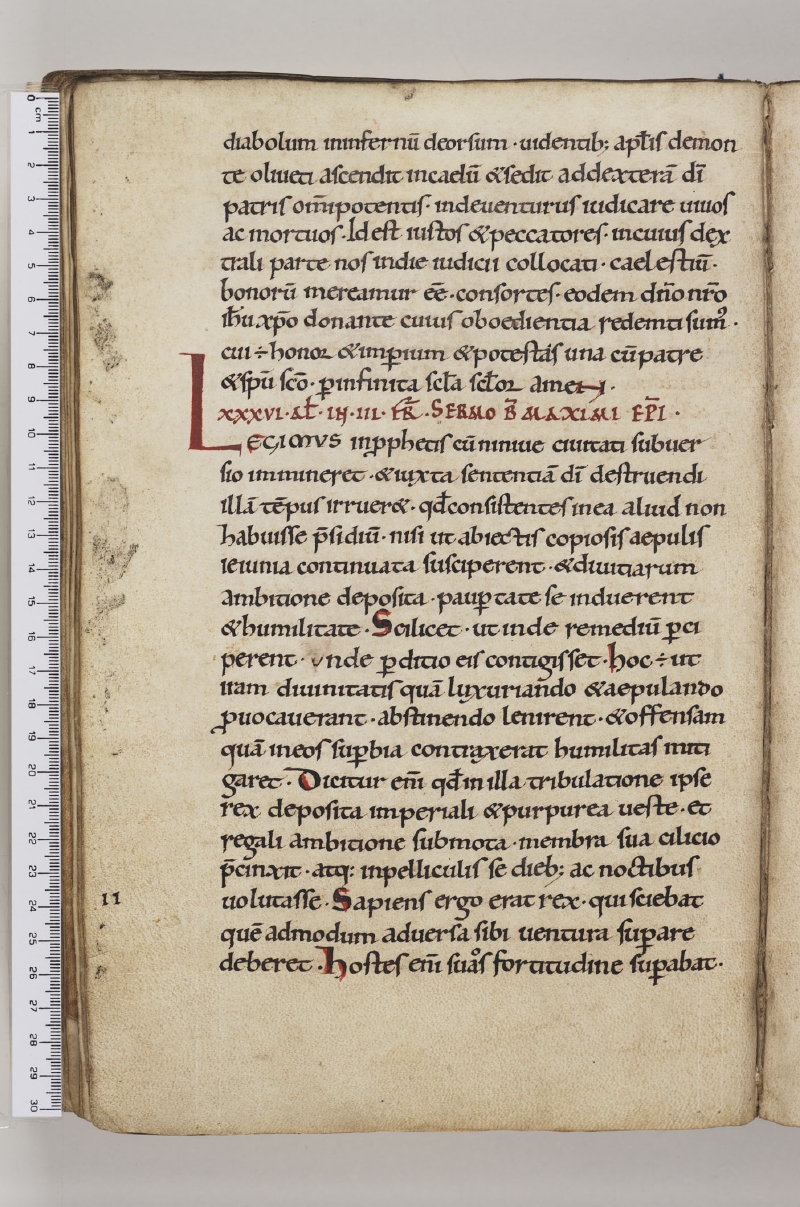 diabolum ininfernū deorsum · uidentib; apl̄is demon
te oliueti ascendit incaelū &sedit addexterā dī
patris om̄ipotentis · indeuenturus iudicare uiuos
ac mortuos · Id est iustos &peccatores · incuius dex
trali parte nos indie iudicii collocati · caelestiū ·
bonorū mereamur ēē · consortes · eodem dn̄o nr̄o
ih̄u xp̄o donante cuius oboedientia redemti sumꝰ ·
cui ÷ honor &imꝑium &potestas una cū patre
&sp̄u sc̄o · ꝑ infinita scl̄a scl̄oꝝ amen ·
LXXXVI · IN · III · SERMO B̄ MAXIMI EP̄I ·
LEGIMUS inꝓphetis cū niniue ciuitati subuer
sio immineret · &iuxta sententiā dī destruendi
illā tēpus irruer& · qd̄ consistentes in ea aliud non
habuisse p̄sidiū · nisi ut abiectis copiosis aepulis
ieiunia continuata susciperent · &diuitiarum
ambitione deposita · pauꝑtate se induerent
&humilitate · Scilicet · ut inde remediū ꝑci
perent · unde ꝑditio eis contigisset · hoc ÷ ut
iram diuinitatis quā luxuriando &aepulando
ꝓuocauerant · abstinendo lenirent · &offensam
quā in eos suꝑbia contraxerat humilitas miti
garet · Dicitur eni̅ qd̄ in illa tribulatione ipse
rex deposita imperiali &purpurea ueste · et
regali ambitione submota · membra sua cilicio
p̄cinxit · atq; inpelliculis se dieb; ac noctibus
11
uolutasse · Sapiens ergo erat rex · qui sciebat
quē admodum aduersa sibi uentura suꝑare
deberet · hostes eni̅ suas fortitudine suꝑabat ·
0 cm 1 2 3 4 5 6 7 8 9 10 11 12 13 14 15 16 17 18 19 20 21 22 23 24 25 26 27 28 29 30